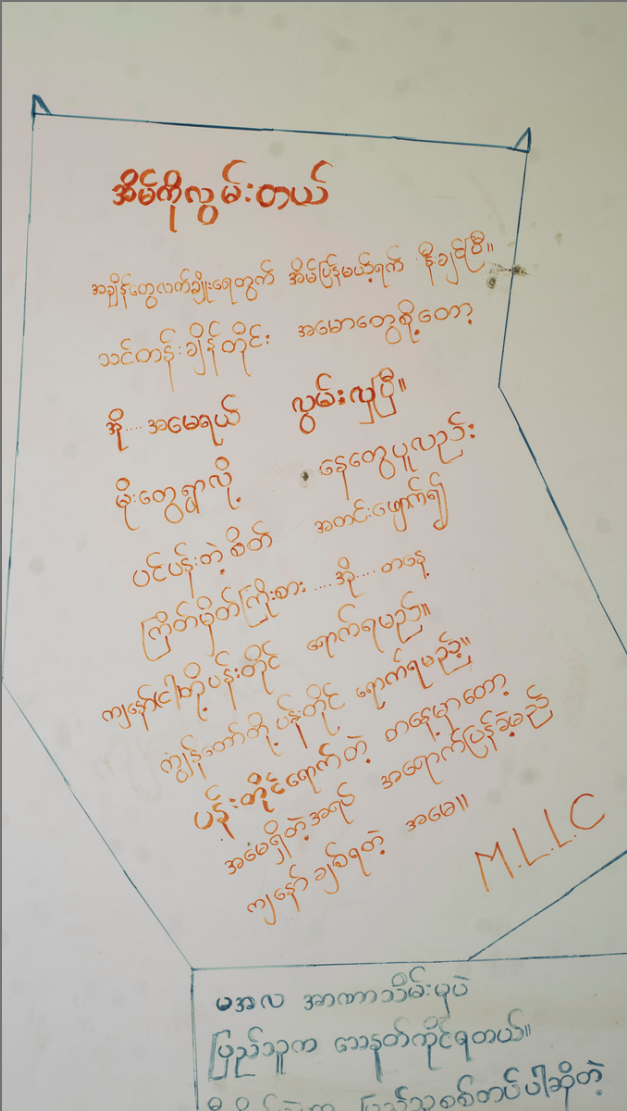 အိမ်ကိုလွမ်းတယ်
အချိန်တွေလက်ချိုးရေတွက် အိမ်ပြန်မယ့်ရက် နီးချင်ပြီ။
သင်တန်းချိန်တိုင်း အမောတွေစို့တော့
အို.... အမေရယ် လွမ်းလှပြီ။
မိုးတွေရွာလို့ နေတွေပူလည်း
ပင်ပန်းတဲ့စိတ် အတင်းဖျောက်၍
ကြိတ်မှိတ်ကြိုးစား .... အို .... တနေ့
ကျနော်(ငါ)တို့ပန်းတိုင် ရောက်ရမည်။
ကျွန်တော်တို့ပန်းတိုင် ရောက်ရမည့်။
ပန်းတိုင်ရောက်တဲ့ တနေ့မှာတော့
အမေရှိတဲ့အရပ် အရောက်ပြန်ခဲ့မည်
ကျနော်ချစ်ရတဲ့ အမေ။
M.L.L.C
မအလ အာဏာသိမ်းမှုပဲ
ပြည်သူက သေနတ်ကိုင်ရတယ်။
ပြည်သူ့စစ်တပ်ပါဆိုတဲ့